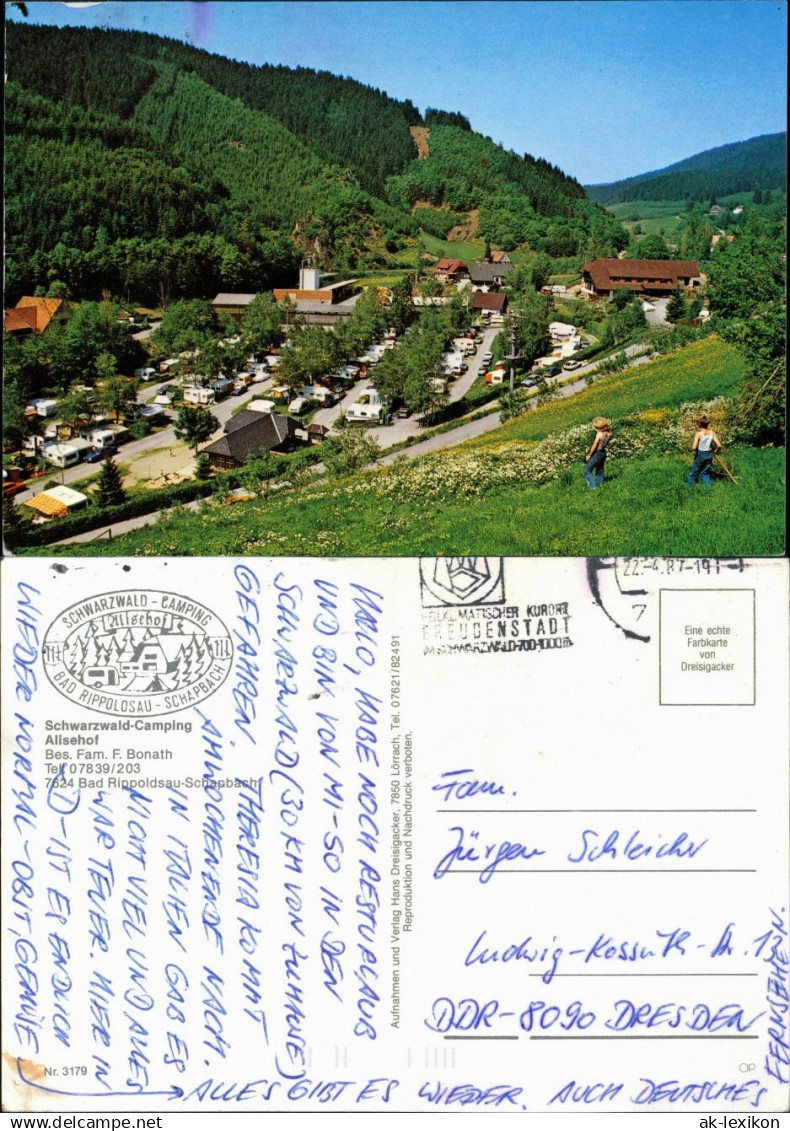 © ak-lexikon.com
SCHWARZWALD - CAMPING
Alisehof
BAD RIPPOLDSAU - SCHAPBACH
Schwarzwald-Camping
Alisehof
Bes. Fam. F. Bonath
Tel. 07839/203
7624 Bad Rippoldsau-Schapbach
HALLO, HABE NOCH RESTURLAUB
UND BIN VON MI-SO IN DEN
SCHWARZWALD (30 KM VON ZUHAUSE)
GEFAHREN. THERESIA KOMMT
AM WOCHENENDE NACH.
IN ITALIEN GAB ES
NICHT VIEL UND ALLES
WAR TEUER. HIER IN
D - IST ES ENDLICH
WIEDER NORMAL - OBST, GEMÜSE
ALLES GIBT ES WIEDER. AUCH DEUTSCHES
FERNSEHEN.
Nr. 3179
Aufnahmen und Verlag Hans Dreisigacker, 7850 Lörrach, Tel. 07621/82491
Reproduktion und Nachdruck verboten.
HEILKLIMATISCHER KURORT
FREUDENSTADT
IM SCHWARZWALD·700-1000 m
22.-4.87-19
7
Eine echte
Farbkarte
von
Dreisigacker
Fam.
Jürgen Schleicher
Ludwig-Kossuth-Str. 13
DDR-8090 DRESDEN
www.ak-ansichtskarten.de
ak-lexikon.com